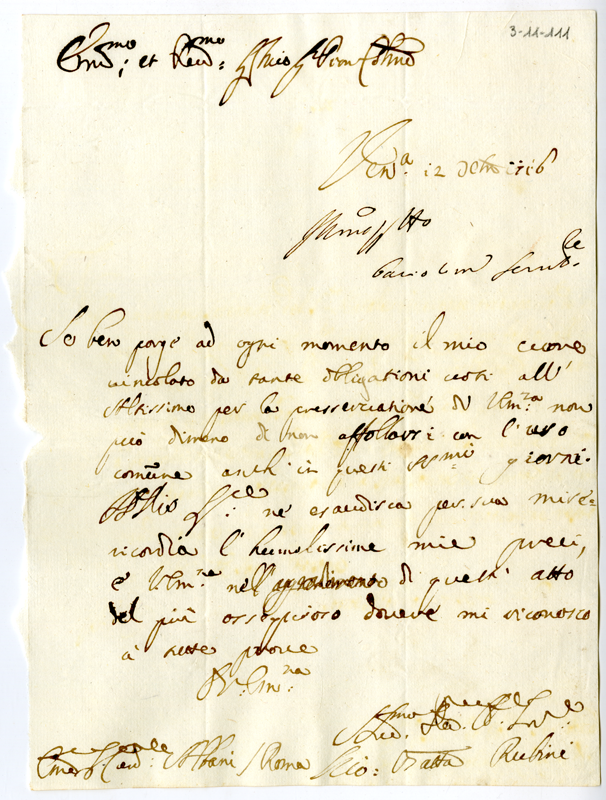 3-11-111
Em.mo et Rev.mo Sig.r mio Sig.r Pron Col.mo
Ven.a 12 Xbre 1716
Se ben porge ad ogni momento il mio cuore
vincolato da tante obligationi voti all'
Altissimo per la preservatione di V. Em.za non
può dimeno di non affollarsi con l'uso
comune anch'in questi SS.mi giorni.
Iddio ne esaudisca per sua mise=
ricordia l'humilissime mie preci,
e V. Em.za nell'aggradimento di questi atto
del più ossequioso dovere mi riconosca
à tutte prove
D. V. Em.za
Albani / Roma
Gio: Batta Rubini